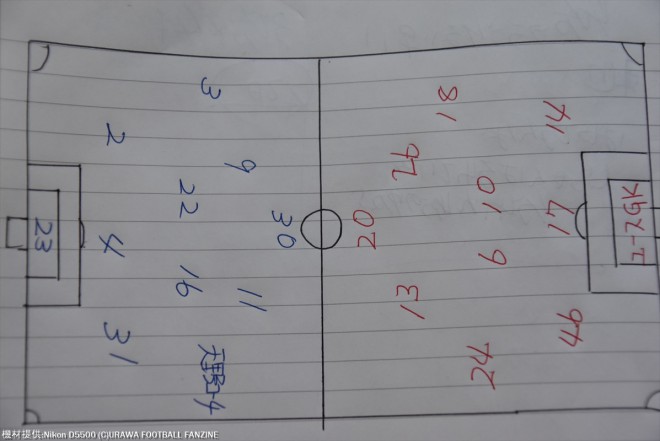 3
2
9
22
30
23
4
16
11
31
天野コーチ
18
14
10
20
17
ユースGK
6
13
24
46
機材提供:Nikon D5500 (C)URAWA FOOTBALL FANZINE